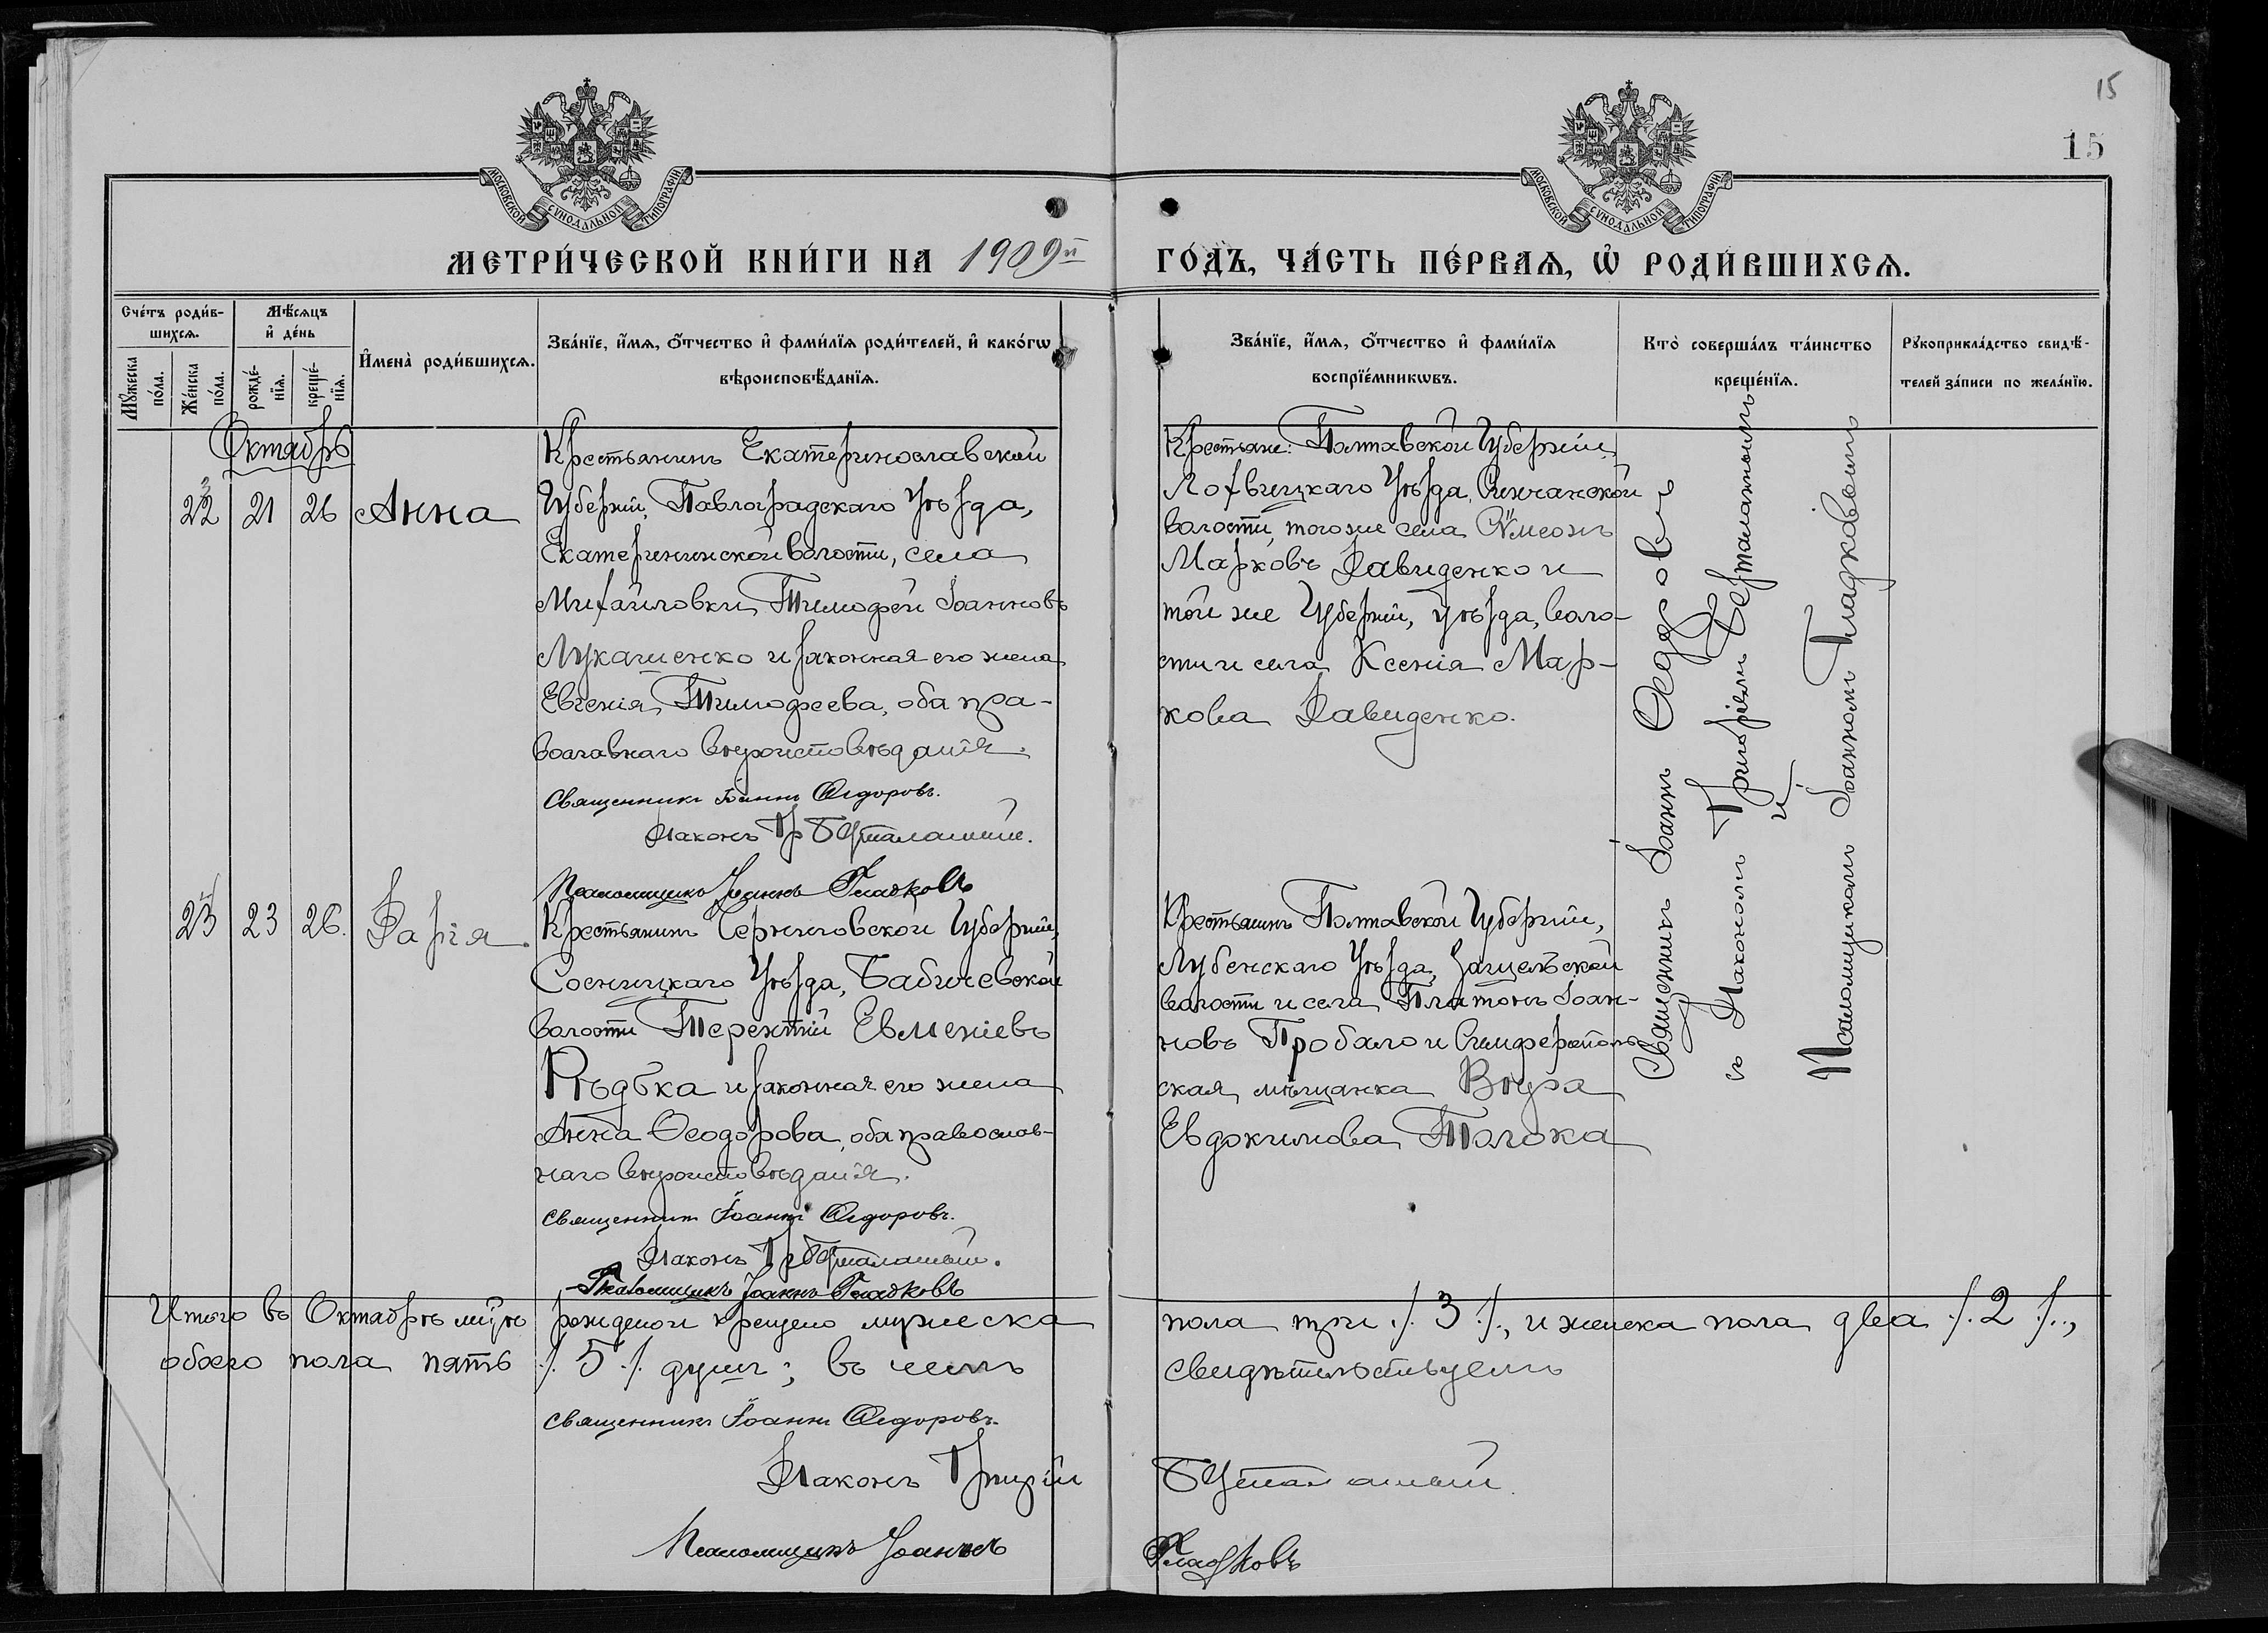 15
15
МОСКОВСКОЙ СУНОДАЛЬНОЙ ТИПОГРАФІИ
МОСКОВСКОЙ СУНОДАЛЬНОЙ ТИПОГРАФІИ
МЕТРИ́ЧЕСКОЙ КНИ́ГИ НА 1909й
ГО́ДЪ, ЧА́СТЬ ПЕ́РВАѦ, Ѡ҆ РОДИ́ВШИХСѦ.
Сче́тъ роди́в-
шихсѧ.
Мꙋ́жеска по́ла.
Же́нска по́ла.
Мѣ́сѧцъ
и҆ де́нь
рожде́-
нїѧ.
креще́-
нїѧ.
И҆мена̀ роди́вшихсѧ.
Зва́нїе, и҆́мѧ, ѻ҆́тчество и҆ фами́лїѧ роди́телей, и҆ како́гѡ
вѣроисповѣ́данїѧ.
Зва́нїе, и҆́мѧ, ѻ҆́тчество и҆ фами́лїѧ
воспрїе́мникѡвъ.
Кто̀ соверша́лъ та́инство
креще́нїѧ.
Рꙋкоприкла́дство свидѣ́-
телей за́писи по жела́нїю.
Октябрь
22 21 26 Анна
Крестьянинъ Екатеринославской
Губерніи, Павлоградскаго Уѣзда,
Екатерининской волости, села
Михайловки Тимофей Іоанновъ
Лукашенко и законная его жена
Евгенія Тимофеева, оба пра-
вославнаго вѣроисповѣданія.
Священникъ Іоаннъ Ѳедоровъ.
Діаконъ Гр
Псаломщикъ Іоаннъ Гладковъ
Крестьяне: Полтавской Губерніи,
Лохвицкаго Уѣзда, волости, того же села Сѵмеонъ
Марковъ Давиденко и
той же Губерніи, уѣзда, воло-
сти и села Ксенія Мар-
кова Давиденко.
Священникъ Іоаннъ Ѳедоровъ
съ Діакономъ Григоріемъ
и
Псаломщикомъ Іоанномъ Гладковымъ
23 23 26. Дарія.
Крестьянинъ Черниговской Губерніи,
Сосницкаго Уѣзда, Бабичевской
волости Терентій Евменіевъ
Рѣдька и законная его жена
Анна Ѳеодорова, оба православ-
наго вѣроисповѣданія.
Священникъ Іоаннъ Ѳедоровъ.
Діаконъ Гр
Псаломщикъ Іоаннъ Гладковъ
Крестьянинъ Полтавской Губерніи,
Лубенскаго Уѣзда,
волости и села Платонъ Іоан-
новъ Пробало и Симферополь-
ская мѣщанка Вѣра
Евдокимова Толока
Итого въ Октябрѣ мцѣ рождено и крещено мужеска пола три ./. 3 ./., и женска пола два ./. 2 ./.,
обоего пола пять ./. 5 ./. душъ; въ чемъ свидѣтельствуемъ
Священникъ Іоаннъ Ѳедоровъ.
Діаконъ Григорій
Псаломщикъ Іоаннъ Гладковъ